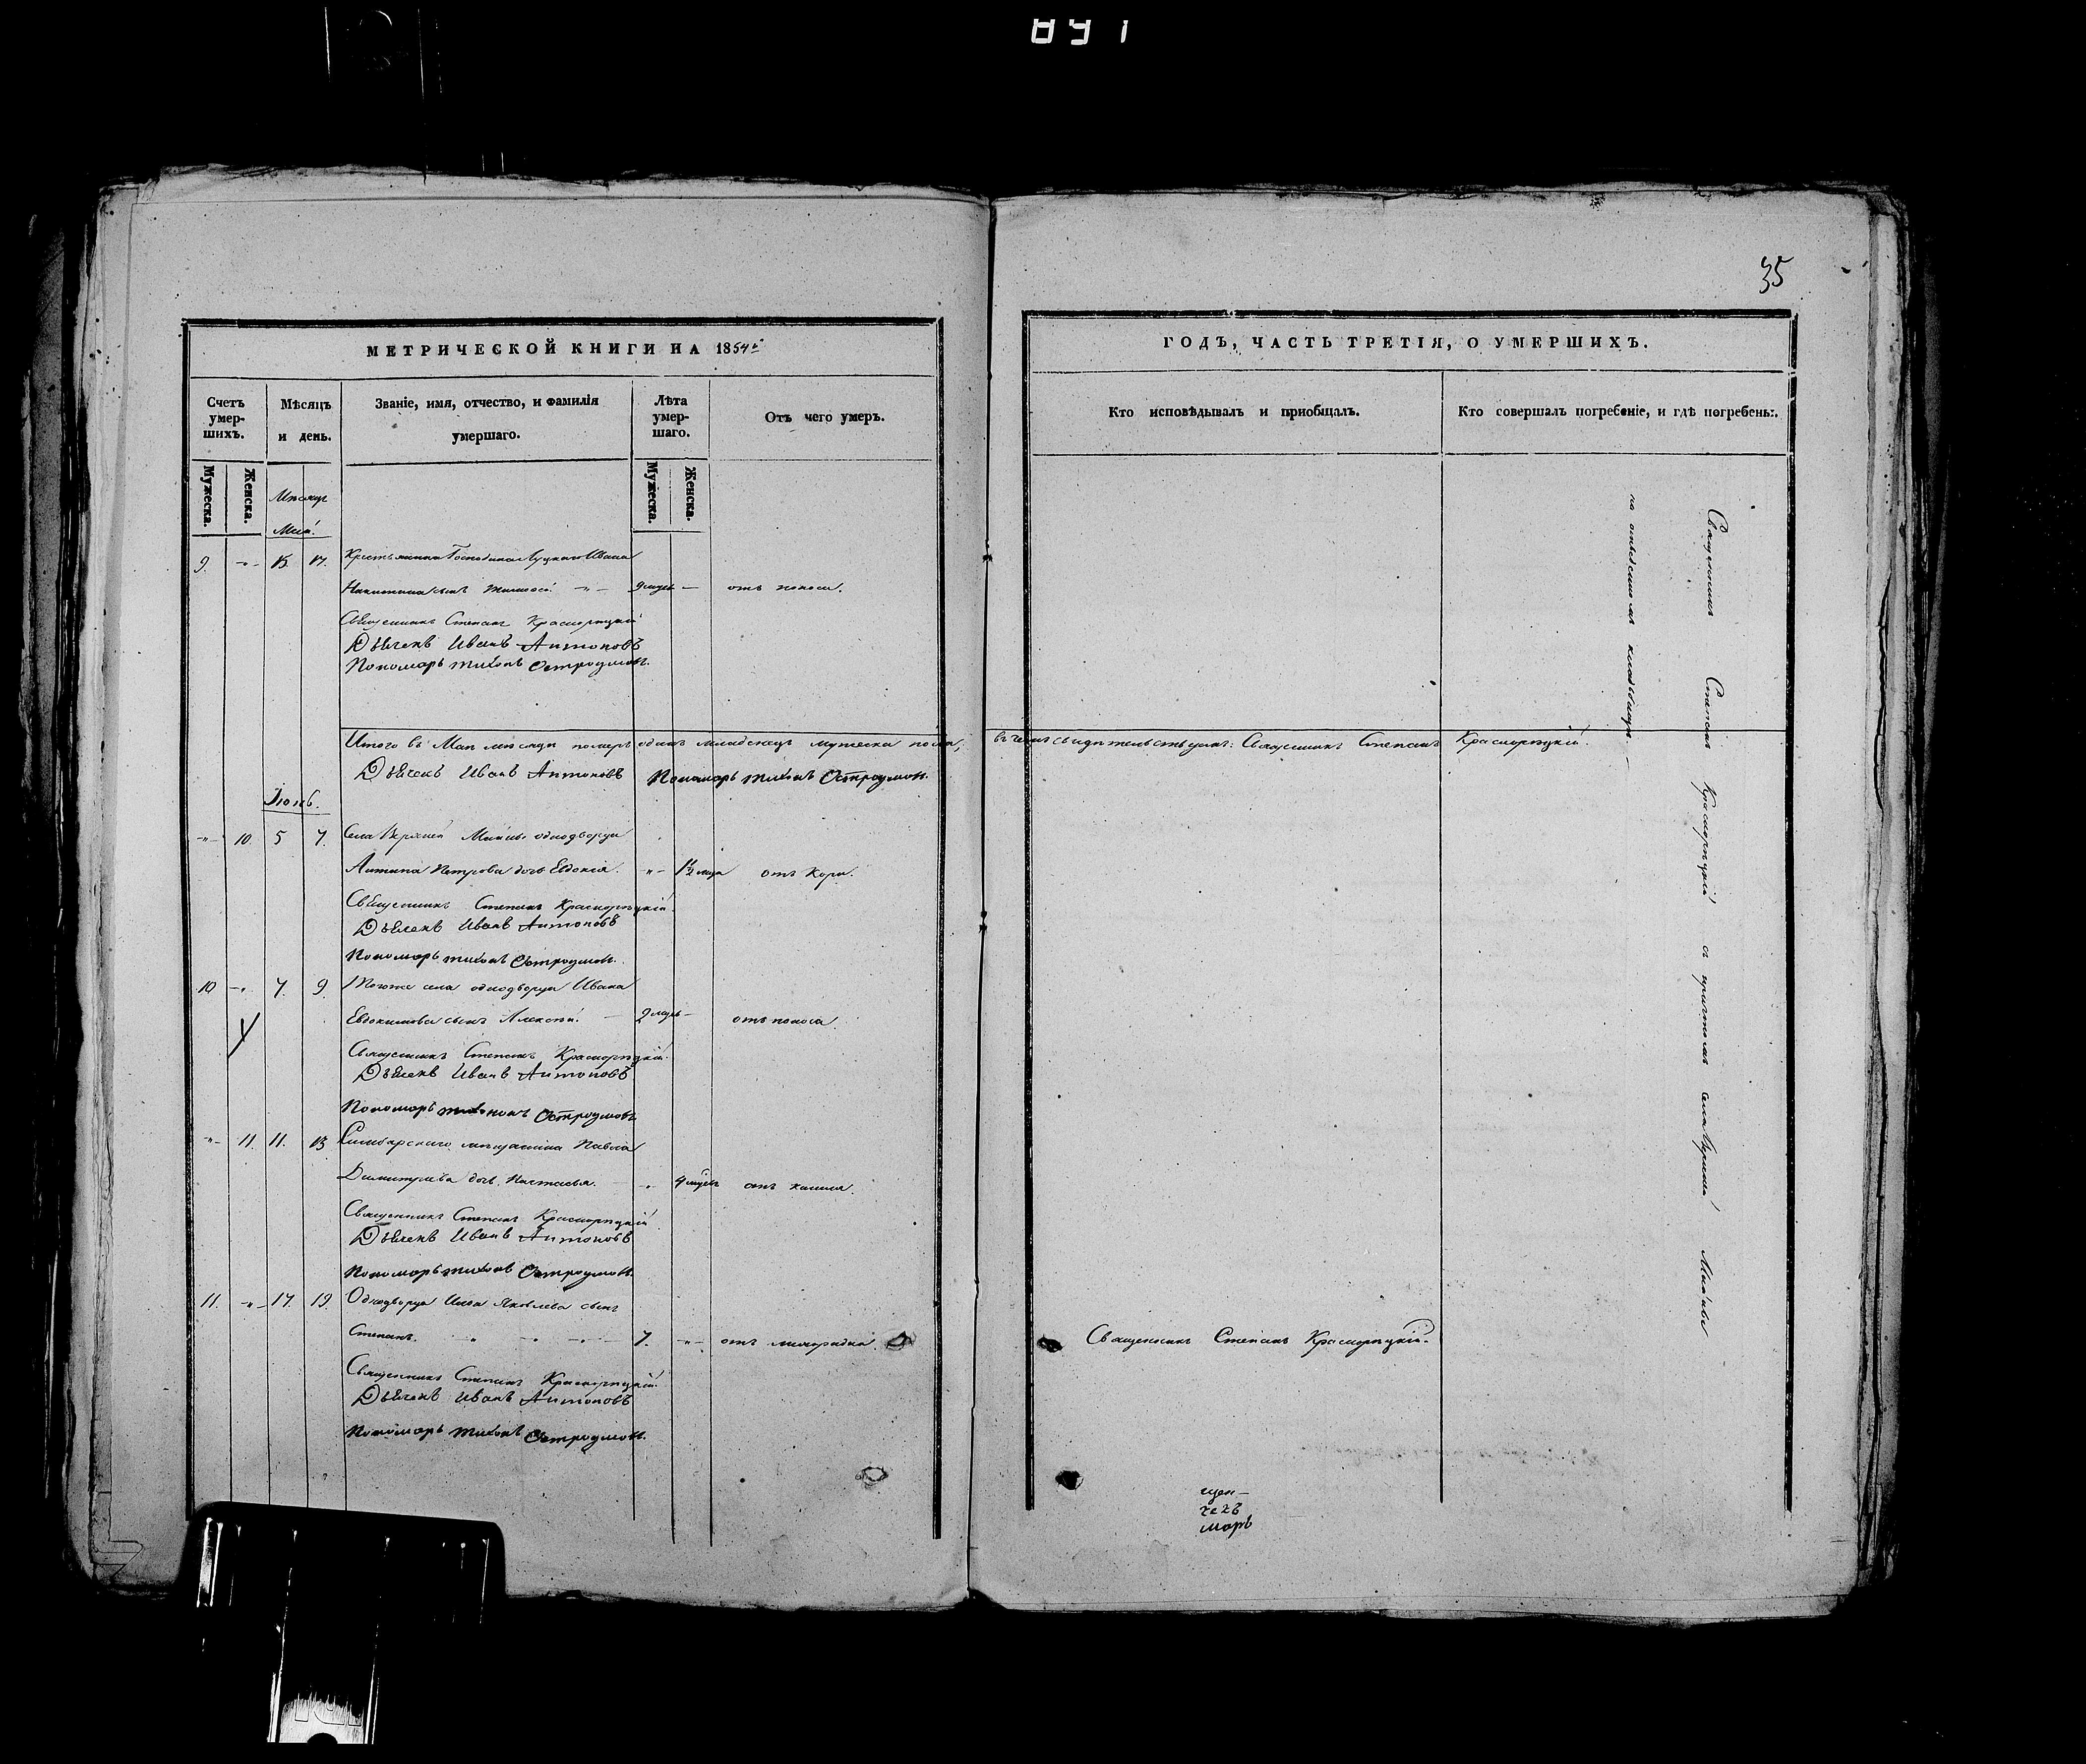 891
35
МЕТРИЧЕСКОЙ КНИГИ НА 1854й
Счетъ умер-шихъ.
Мѣсяцъ и день.
Званіе, имя, отчество, и фамилія умершаго.
Лѣта умер-шаго.
Отъ чего умеръ.
Мужеска.
Женска.
Мужеска.
Женска.
Мѣсяцъ
Май.
9. -"- 15 17. Крестьянина Ивана
Никитина сынъ - 9 - отъ поноса.
Священникъ Степанъ Красноряцкій
Дьячекъ Иванъ Антоновъ
Пономарь Тихонъ Остроумовъ.
Итого въ Маѣ мѣсяцѣ померъ одинъ младенецъ мужеска пола,
Дьячекъ Иванъ Антоновъ Пономарь Тихонъ Остроумовъ.
Іюнь.
-"- 10. 5 7. Села однодворца
Антипа Петрова дочь Евдокія. -"- 1½ отъ Кори.
Священникъ Степанъ Красноряцкій.
Дьячекъ Иванъ Антоновъ
Пономарь Тихонъ Остроумовъ.
10 -"- 7. 9. Тогоже села однодворца Ивана
Евдокимова сынъ Алексѣй. - 2 - отъ поноса.
Священникъ Степанъ Красноряцкій.
Дьячекъ Иванъ Антоновъ
Пономарь Тихонъ Остроумовъ
-"- 11. 11. 13 Симбирскаго мѣщанина Павла
Димитріева дочь Настасья. - 4 отъ кашля.
Священникъ Степанъ Красноряцкій
Дьячекъ Иванъ Антоновъ
Пономарь Тихонъ Остроумовъ.
11. -"- 17. 19. Однодворца Яковлева сынъ
Степанъ. 7. -"- отъ лихорадки.
Священникъ Степанъ Красноряцкій.
Дьячекъ Иванъ Антоновъ
Пономарь Тихонъ Остроумовъ.
ГОДЪ, ЧАСТЬ ТРЕТІЯ, О УМЕРШИХЪ.
Кто исповѣдывалъ и пріобщалъ.
Кто совершалъ погребеніе, и гдѣ погребены.
въ чемъ свидѣтельствуемъ: Священникъ Степанъ Красноряцкій.
Священникъ Степанъ Красноряцкій.
Священникъ Степанъ Красноряцкій съ причтомъ села
на кладбищѣ.
щен-
чекъ
марь